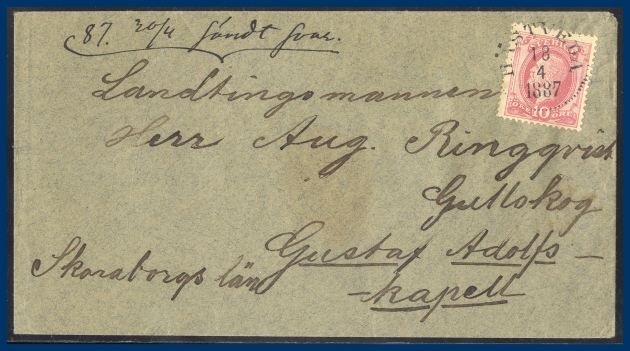 87. 20/4 sändt svar.
SVERIGE
HÄSTVEDA
18
4
1887
10 ÖRE
Landtingsmannen
Herr Aug. Ringqvist
Gullskog
Gustaf Adolfs-
-kapell
Skaraborgs län